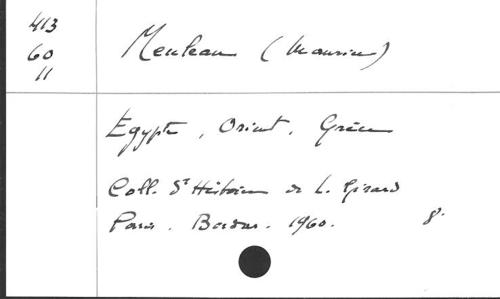 413
60
11
Meuleau (Maurice)
Egypte, Orient, Grèce
Coll. d'Histoire de L. Girard
Paris. Bordas. 1960. 8°